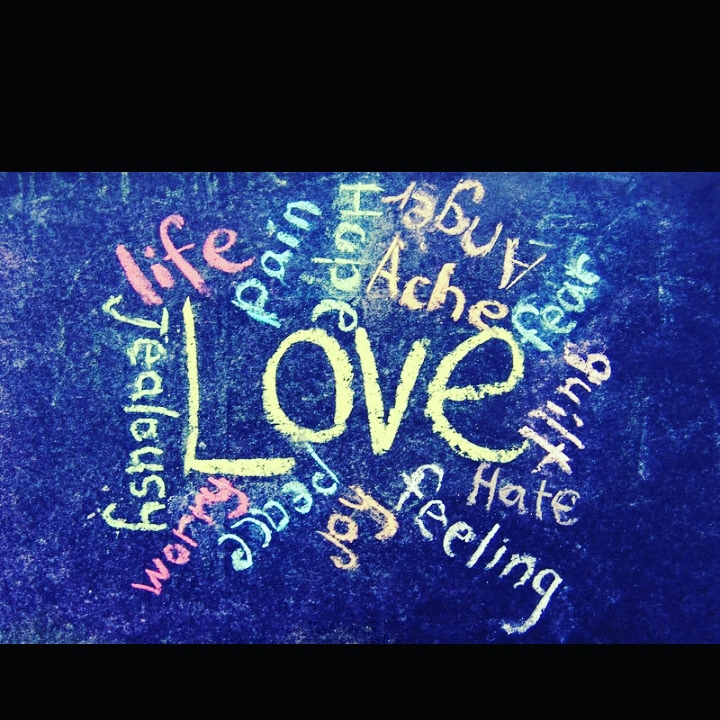 life
Pain
Hope
Anger
Ache
fear
Jealousy
Love
guilt
worry
peace
Joy
feeling
Hate